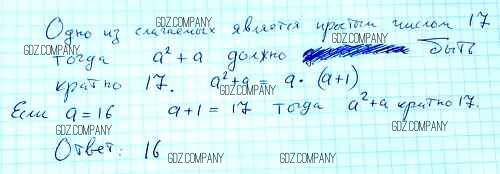 Одно из слагаемых является простым числом 17
GDZ.COMPANY GDZ.COMPANY GDZ.COMPANY
тогда a² + a должно быть
кратно 17. a²+a = a · (a+1)
GDZ.COMPANY GDZ.COMPANY
Если a = 16 a+1 = 17 тогда a²+a кратно 17.
GDZ.COMPANY GDZ.COMPANY
Ответ: 16
GDZ.COMPANY GDZ.COMPANY